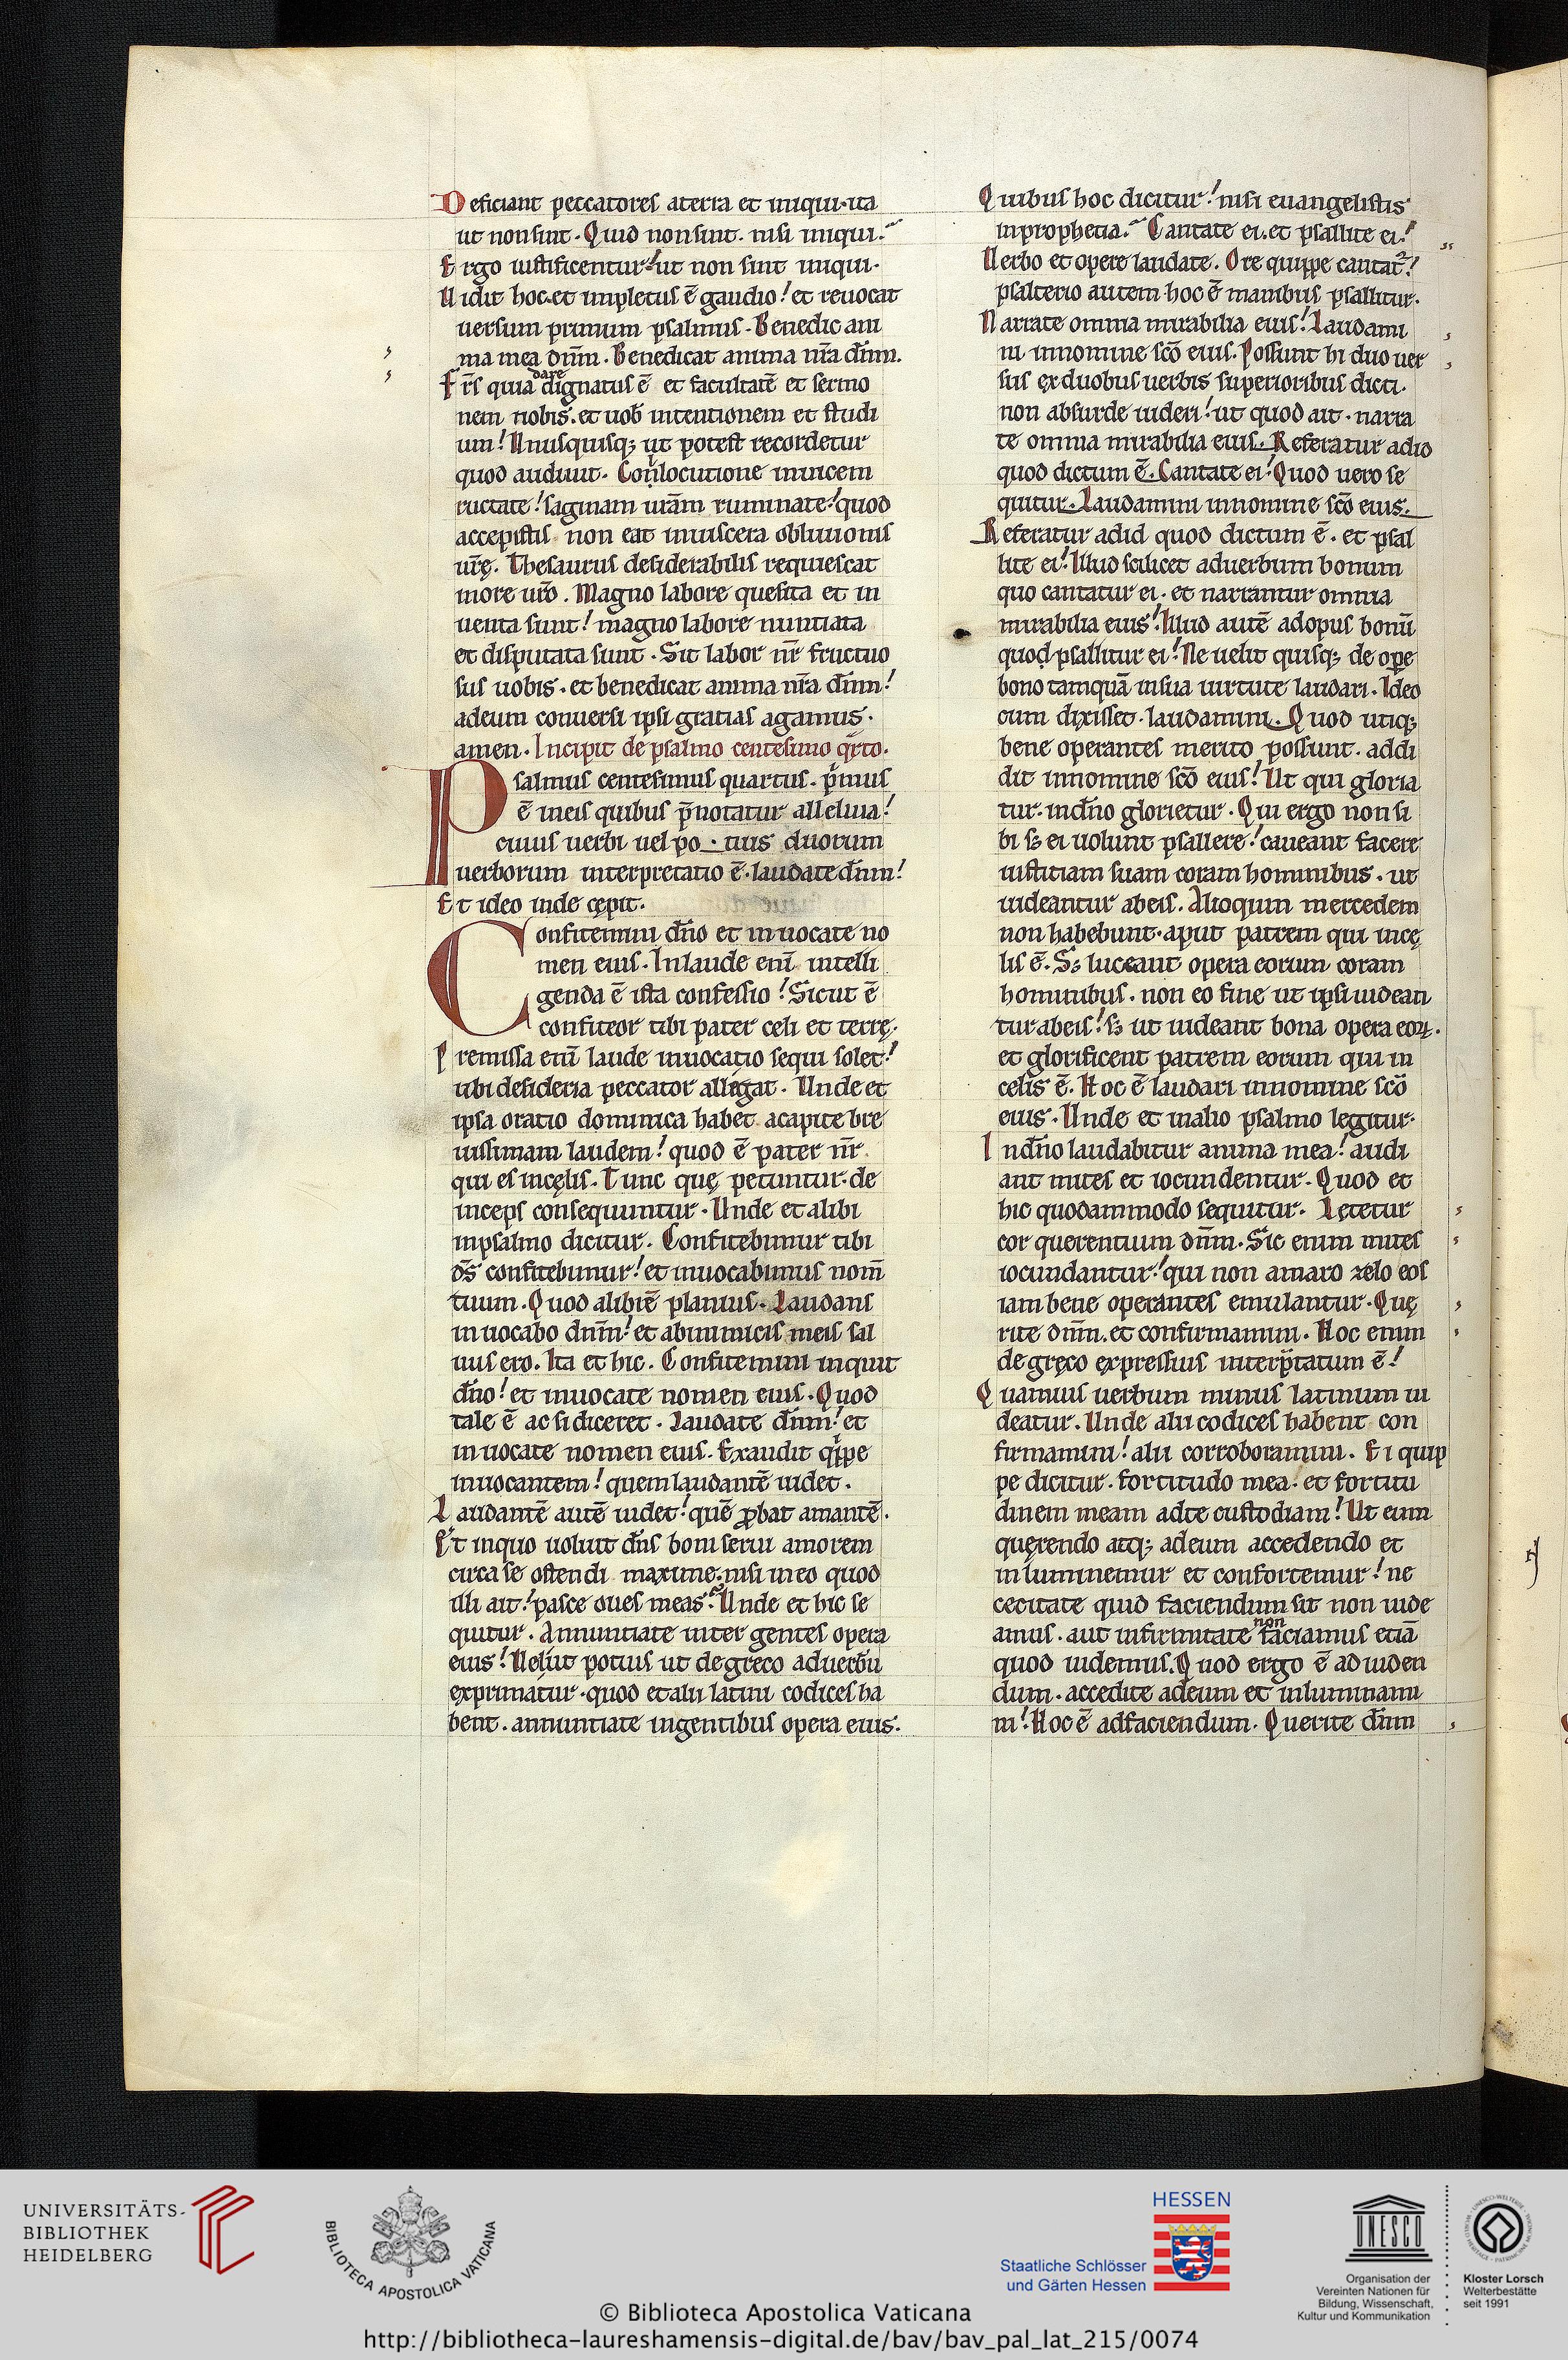 Deficiant peccatores a terra et iniqui· ita
ut non sint. Quid non sint. nisi iniqui.
Ergo iustificentur! ut non sint iniqui.
Vidit hoc. et impletus ē gaudio! et reuocat
uersum primum psalmus. Benedic ani
ma mea dn̄m. Benedicat anima nr̄a dn̄m.
Fr̄s quia dare dignatus ē et facultatē et sermo
nem nobis. et uob̄ intentionem et studi
um! Unusquisq; ut potest recordetur
quod audiuit. Conlocutione inuicem
ructate! saginam ur̄am ruminate! quod
accepistis non eat in uiscera obliuionis
ur̄ę. Thesaurus desiderabilis requiescat
in ore ur̄o. Magno labore quesita et in
uenta sunt! magno labore nuntiata
et disputata sunt. Sit labor nr̄ fructuo
sus uobis. et benedicat anima nr̄a dn̄m!
ad eum conuersi ipsi gratias agamus.
amen. Incipit de psalmo centesimo qrto.
Psalmus centesimus quartus. pmus
ē in eis quibus p̄notatur alleluia!
cuius uerbi uel po tius duorum
uerborum interpretatio ē. laudate dn̄m!
Et ideo inde cępit.
Confitemini dn̄o et inuocate no
men eius. In laude enī intelli
genda ē ista confessio! Sicut ē
confiteor tibi pater celi et terrę.
Premissa enī laude inuocatio sequi solet!
ubi desideria peccator alligat. Unde et
ipsa oratio dominica habet a capite bre
uissimam laudem! quod ē pater nr̄
qui es in cęlis. Tunc quę petuntur. de
inceps consequuntur. Unde et alibi
in psalmo dicitur. Confitebimur tibi
ds̄ confitebimur! et inuocabimus nom̄
tuum. Quod alibi ē planius. Laudans
inuocabo dn̄m! et ab inimicis meis sal
uus ero. Ita et hic. Confitemini inquit
dn̄o! et inuocate nomen eius. Quod
tale ē ac si diceret. Laudate dn̄m! et
inuocate nomen eius. Exaudit qippe
inuocantem! quem laudantē uidet.
Laudantē autē uidet! quē ꝓbat amantē.
Et in quo uoluit dn̄s boni serui amorem
circa se ostendi maxime. nisi in eo quod
illi ait! pasce oues meas. Unde et hic se
quitur. Annuntiate inter gentes opera
eius! Uelut potius ut de greco ad uerbū
exprimatur. quod et alii latini codices ha
bent. annuntiate in gentibus opera eius.
Quibus hoc dicitur! nisi euangelistis
in prophetia. Cantate ei. et psallite ei!
Verbo et opere laudate. Ore quippe cantat!
psalterio autem hoc ē manibus psallitur.
Narrate omnia mirabilia eius! Laudami
ni in nomine scō eius. Possunt hi duo uer
sus ex duobus uerbis superioribus dicti.
non absurde uideri! ut quod ait. narra
te omnia mirabilia eius. Referatur ad id
quod dictum ē. Cantate ei! Quod uero se
quitur. Laudamini in nomine scō eius.
Referatur ad id quod dictum ē. et psal
lite ei! Illud scilicet ad uerbum bonum
quo cantatur ei. et narrantur omnia
mirabilia eius! Illud autē ad opus bonū
quod psallitur ei! Ne uelit quisq; de ope
bono tamquā in sua uirtute laudari. Ideo
cum dixisset. laudamini. Quod utiq;
bene operantes merito possunt. addi
dit in nomine scō eius! Ut qui gloria
tur. in dn̄o glorietur. Qui ergo non si
bi s; ei uolunt psallere! caueant facere
iustitiam suam coram hominibus. ut
uideantur ab eis. Alioquin mercedem
non habebunt. aput patrem qui in cę
lis ē. S; luceant opera eorum coram
hominibus. non eo fine ut ipsi uidean
tur ab eis! s; ut uideant bona opera eoꝝ.
et glorificent patrem eorum qui in
celis ē. Hoc ē laudari in nomine scō
eius. Unde et in alio psalmo legitur.
In dn̄o laudabitur anima mea! audi
ant mites et iocundentur. Quod et
hic quodammodo sequitur. Lętetur
cor querentium dn̄m. Sic enim mites
iocundantur! qui non amaro zelo eos
iam bene operantes emulantur. Quę
rite dn̄m. et confirmamini. Hoc enim
de gręco expressius interp̄tatum ē!
Quamuis uerbum minus latinum ui
deatur. Unde alii codices habent con
firmamini! alii corroboramini. Ei quip
pe dicitur. fortitudo mea. et fortitu
dinem meam ad te custodiam! Ut eum
quęrendo atq; ad eum accedendo et
inluminemur et confortemur! ne
cecitate quid faciendum sit non uide
amus. aut infirmitate non faciamus etiā
quod uidemus. Quod ergo ē ad uiden
dum. accedite ad eum et inluminami
ni! Hoc ē ad faciendum. Querite dn̄m
UNIVERSITÄTS-
BIBLIOTHEK
HEIDELBERG
BIBLIOTECA APOSTOLICA VATICANA
HESSEN
Staatliche Schlösser
und Gärten Hessen
UNESCO
Organisation der
Vereinten Nationen für
Bildung, Wissenschaft,
Kultur und Kommunikation
Kloster Lorsch
Welterbestätte
seit 1991
© Biblioteca Apostolica Vaticana
http://bibliotheca-laureshamensis-digital.de/bav/bav_pal_lat_215/0074